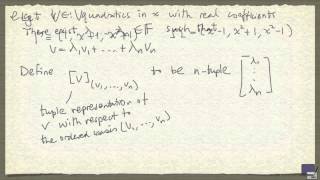 Let v ∈ V
quadratics in x with real coefficients
There exist λ₁, ..., λₙ ∈ F such that
x²-1, x²+1, x²-1
v = λ₁v₁ + ... + λₙvₙ
Define [v](v₁, ..., vₙ) to be n-tuple [λ₁ ⋮ λₙ]
tuple representation of
v with respect to
the ordered basis (v₁, ..., vₙ)